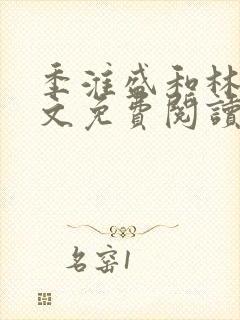 季淮盛和林
文免費閱讀
名窑1